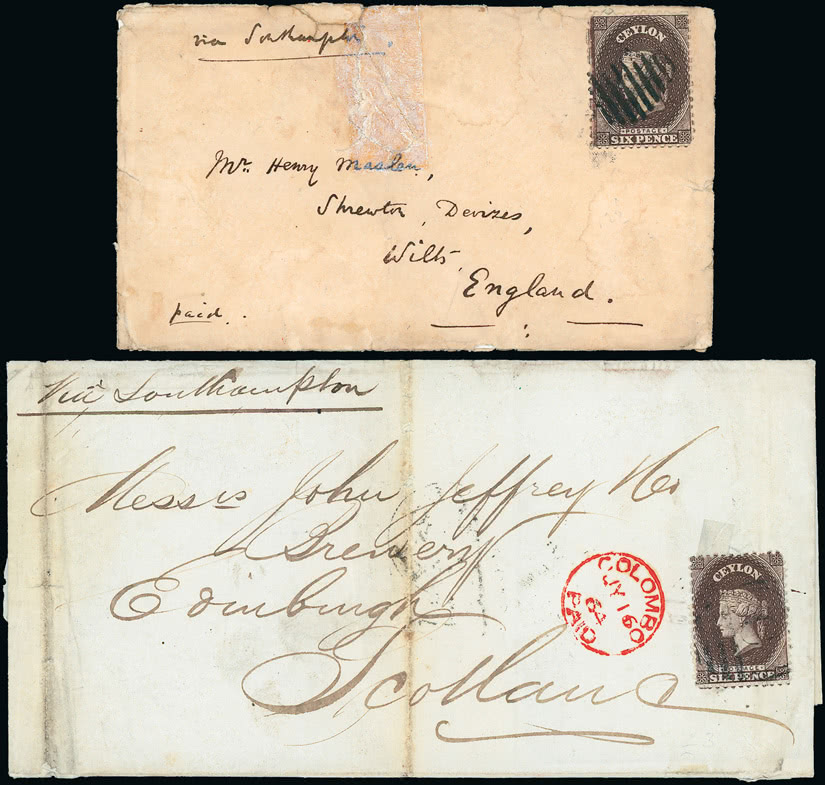 via Southampton
CEYLON
POSTAGE
SIX PENCE
Mr. Henry Maslen,
Shrewton, Devizes,
Wilts
England.
paid.
Via Southampton
Messrs John Jeffrey & Co
Brewery
Edinburgh
Scotland
COLOMBO
JY 16
62
PAID
CEYLON
POSTAGE
SIX PENCE